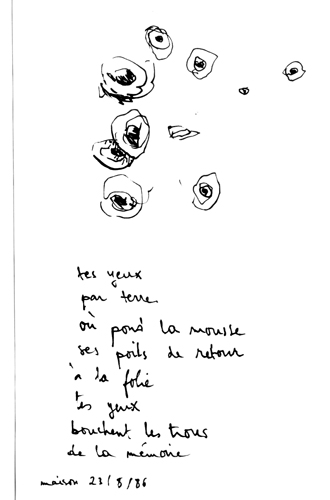 tes yeux
par terre
où pond la mousse
ses poils de retour
à la folie
tes yeux
bouchent les trous
de la mémoire
maison 23/8/86